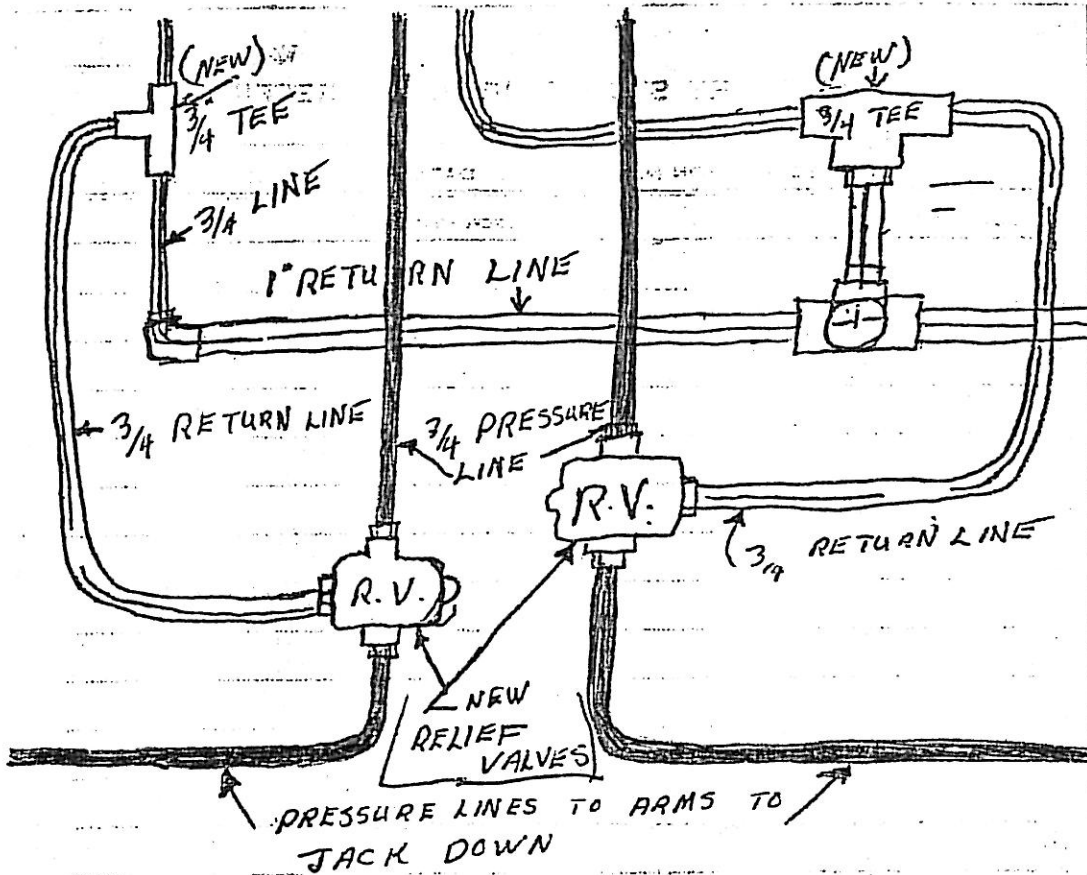 (NEW)
3/4" TEE
3/4 LINE
(NEW)
3/4 TEE
1" RETURN LINE
3/4 RETURN LINE
3/4 PRESSURE
LINE
R.V.
R.V.
3/4 RETURN LINE
NEW
RELIEF
VALVES
PRESSURE LINES TO ARMS TO
JACK DOWN